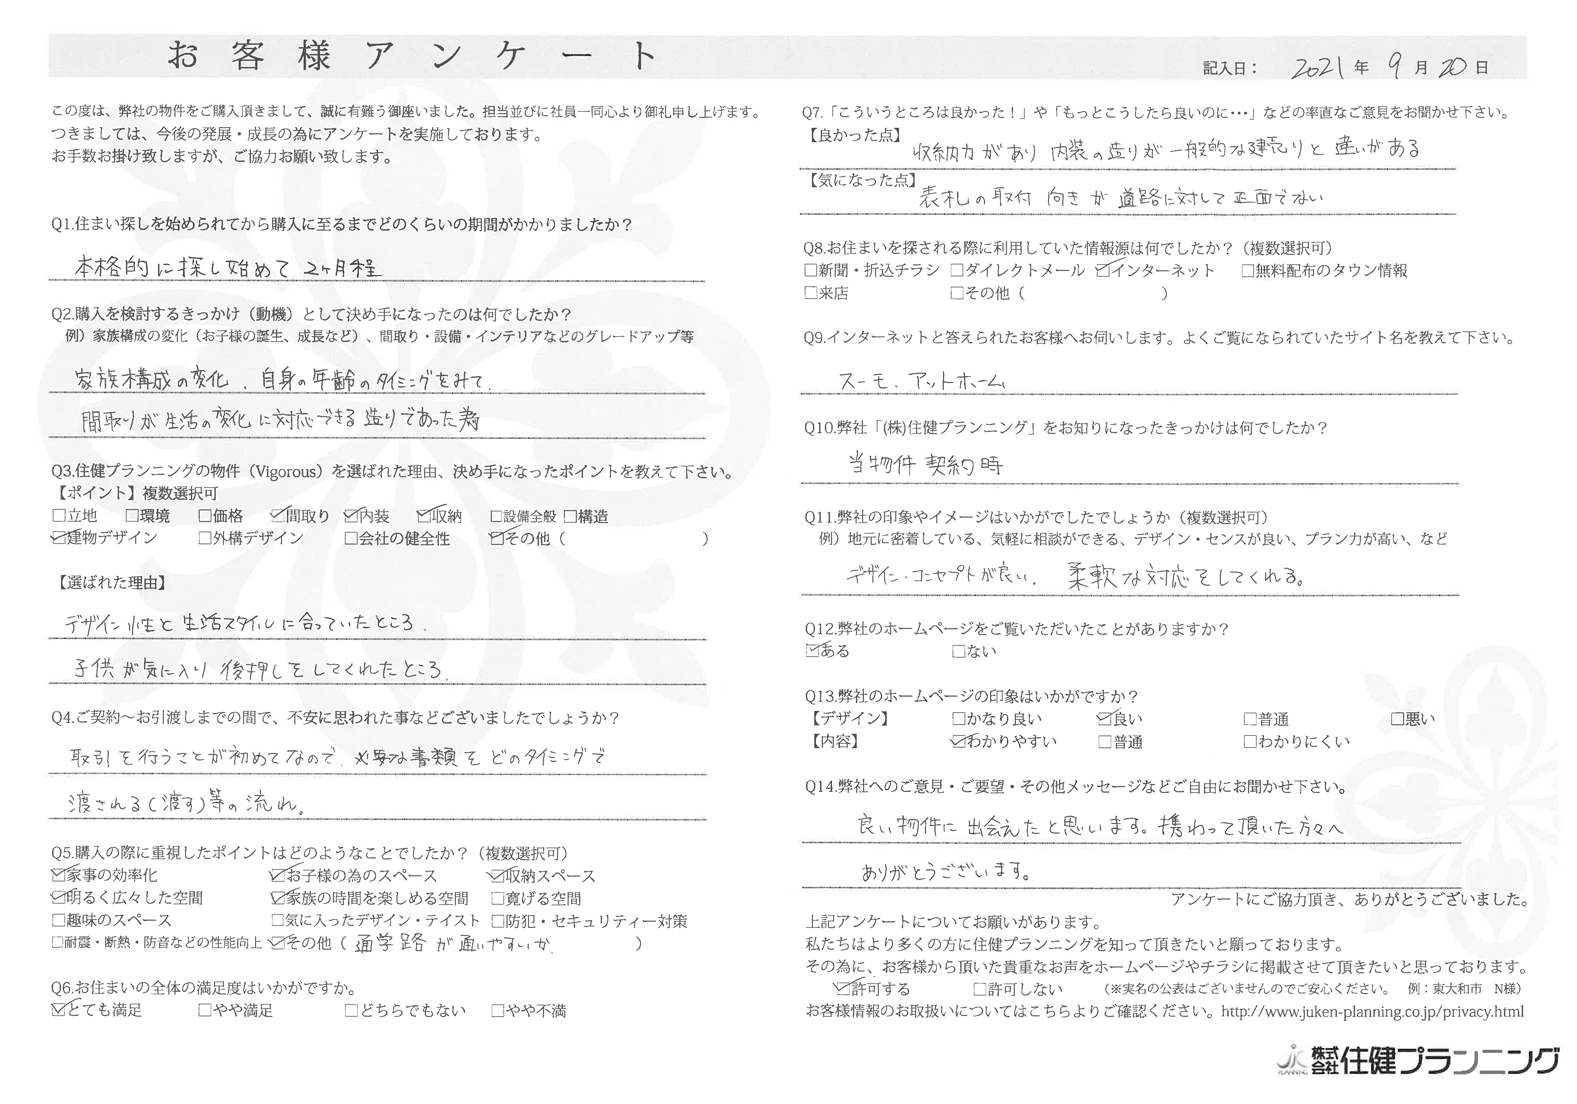 お客様アンケート
記入日： 2021年 9月20日
この度は、弊社の物件をご購入頂きまして、誠に有難う御座いました。担当並びに社員一同心より御礼申し上げます。
つきましては、今後の発展・成長の為にアンケートを実施しております。
お手数お掛け致しますが、ご協力お願い致します。
Q1.住まい探しを始められてから購入に至るまでどのくらいの期間がかかりましたか？
本格的に探し始めて 2ヶ月程
Q2.購入を検討するきっかけ（動機）として決め手になったのは何でしたか？
例）家族構成の変化（お子様の誕生、成長など）、間取り・設備・インテリアなどのグレードアップ等
家族構成の変化、自身の年齢のタイミングをみて.
間取りが生活の変化に対応できる造りであった為
Q3.住健プランニングの物件（Vigorous）を選ばれた理由、決め手になったポイントを教えて下さい。
【ポイント】複数選択可
□立地 □環境 □価格 ☑間取り ☑内装 ☑収納 □設備全般 □構造
☑建物デザイン □外構デザイン □会社の健全性 ☑その他（ ）
【選ばれた理由】
デザイン性と生活スタイルに合っていたところ.
子供が気に入り後押しをしてくれたところ.
Q4.ご契約〜お引渡しまでの間で、不安に思われた事などございましたでしょうか？
取引を行うことが初めてなので、必要な書類をどのタイミングで
渡される(渡す)等の流れ。
Q5.購入の際に重視したポイントはどのようなことでしたか？（複数選択可）
☑家事の効率化 ☑お子様の為のスペース ☑収納スペース
☑明るく広々した空間 ☑家族の時間を楽しめる空間 □寛げる空間
□趣味のスペース □気に入ったデザイン・テイスト □防犯・セキュリティー対策
□耐震・断熱・防音などの性能向上 ☑その他（ 通学路が通いやすいか. ）
Q6.お住まいの全体の満足度はいかがですか。
☑とても満足 □やや満足 □どちらでもない □やや不満
Q7.「こういうところは良かった！」や「もっとこうしたら良いのに・・・」などの率直なご意見をお聞かせ下さい。
【良かった点】
収納力があり 内装の造りが一般的な建売りと違いがある
【気になった点】
表札の取付 向きが道路に対して正面でない
Q8.お住まいを探される際に利用していた情報源は何でしたか？（複数選択可）
□新聞・折込チラシ □ダイレクトメール ☑インターネット □無料配布のタウン情報
□来店 □その他（ ）
Q9.インターネットと答えられたお客様へお伺いします。よくご覧になられていたサイト名を教えて下さい。
スーモ、アットホーム
Q10.弊社「(株)住健プランニング」をお知りになったきっかけは何でしたか？
当物件 契約時
Q11.弊社の印象やイメージはいかがでしたでしょうか（複数選択可）
例）地元に密着している、気軽に相談ができる、デザイン・センスが良い、プラン力が高い、など
デザイン・コンセプトが良い. 柔軟な対応をしてくれる。
Q12.弊社のホームページをご覧いただいたことがありますか？
☑ある □ない
Q13.弊社のホームページの印象はいかがですか？
【デザイン】 □かなり良い ☑良い □普通 □悪い
【内容】 ☑わかりやすい □普通 □わかりにくい
Q14.弊社へのご意見・ご要望・その他メッセージなどご自由にお聞かせ下さい。
良い物件に出会えたと思います。携わって頂いた方々へ
ありがとうございます。
アンケートにご協力頂き、ありがとうございました。
上記アンケートについてお願いがあります。
私たちはより多くの方に住健プランニングを知って頂きたいと願っております。
その為に、お客様から頂いた貴重なお声をホームページやチラシに掲載させて頂きたいと思っております。
☑許可する □許可しない （※実名の公表はございませんのでご安心ください。 例：東大和市 N様）
お客様情報のお取扱いについてはこちらよりご確認ください。http://www.juken-planning.co.jp/privacy.html
JK PLANNING 株式会社 住健プランニング